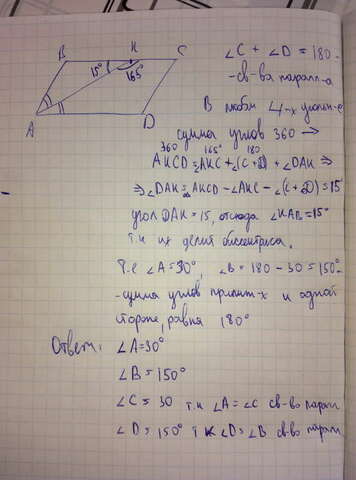 B K C
15° 165°
A D
∠C + ∠D = 180 -
- св-ва паралл-а
В любом 4-х угольн-е
сумма углов 360 →
360 165° 180
AKCD = AKC + ∠(C + D) + ∠DAK ⇒
⇒ ∠DAK = AKCD - ∠AKC - ∠(C + D) = 15°
угол DAK = 15, отсюда ∠KAB = 15°
т.к их делит биссектриса.
Т.е ∠A = 30°, ∠B = 180 - 30 = 150° -
- сумма углов прилеж-х к одной
стороне, равна 180°
Ответ: ∠A = 30°
∠B = 150°
∠C = 30 т.к ∠A = ∠C св-во парал
∠D = 150° т к ∠D = ∠B св-во парал